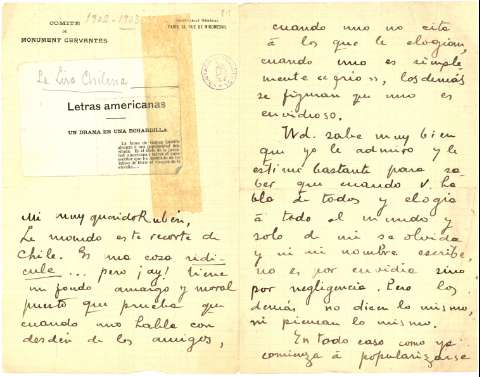 COMITÉ
DE
MONUMENT CERVANTES
1902-1903
PARIS
La Lira Chilena
Letras americanas
UN DRAMA EN UNA BOHARDILLA
Mi muy querido Rubén,
Le mando este recorte de
Chile. Es una cosa ridí-
cula... pero ¡ay! tiene
un fondo amargo y moral
puesto que prueba que
cuando uno habla con
desdén de los amigos,
cuando uno no cita
á los que le elogian,
cuando uno es simple
mente «agrio», los demás
se figuran que uno es
envidioso.
Ud. sabe muy bien
que yo le admiro y le
estimo bastante para sa-
ber que cuando V. ha-
bla de todos y elogia
á todo el mundo y
solo de mi se olvida
y ni mi nombre escribe,
no es por envidia sino
por negligencia. Pero los
demás no dicen lo mismo,
ni piensan lo mismo.
En todo caso como ya
comienza á popularizarse